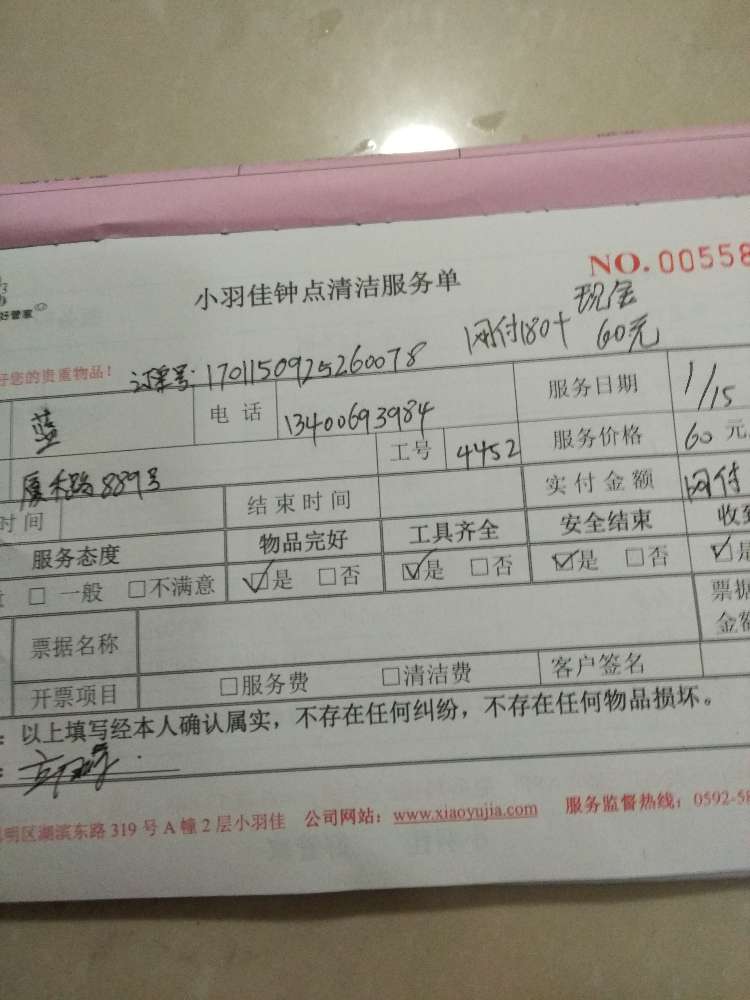 小羽佳钟点清洁服务单
NO. 00558
好管家
网付180+ 现金
60元
好您的贵重物品!
订单号:1701150925260078
蓝
电 话
13400693984
服务日期
1/15
厦禾路889号
工号
4452
服务价格
60元
时间
结束时间
实付金额
网付
服务态度
物品完好
工具齐全
安全结束
收到
□ 一般 □不满意
☑是 □否
☑是 □否
☑是 □否
☑是
票据名称
票据
金额
开票项目
□服务费
□清洁费
客户签名
:以上填写经本人确认属实,不存在任何纠纷,不存在任何物品损坏。
明区湖滨东路 319 号 A 幢 2 层小羽佳 公司网站:www.xiaoyujia.com 服务监督热线:0592-58